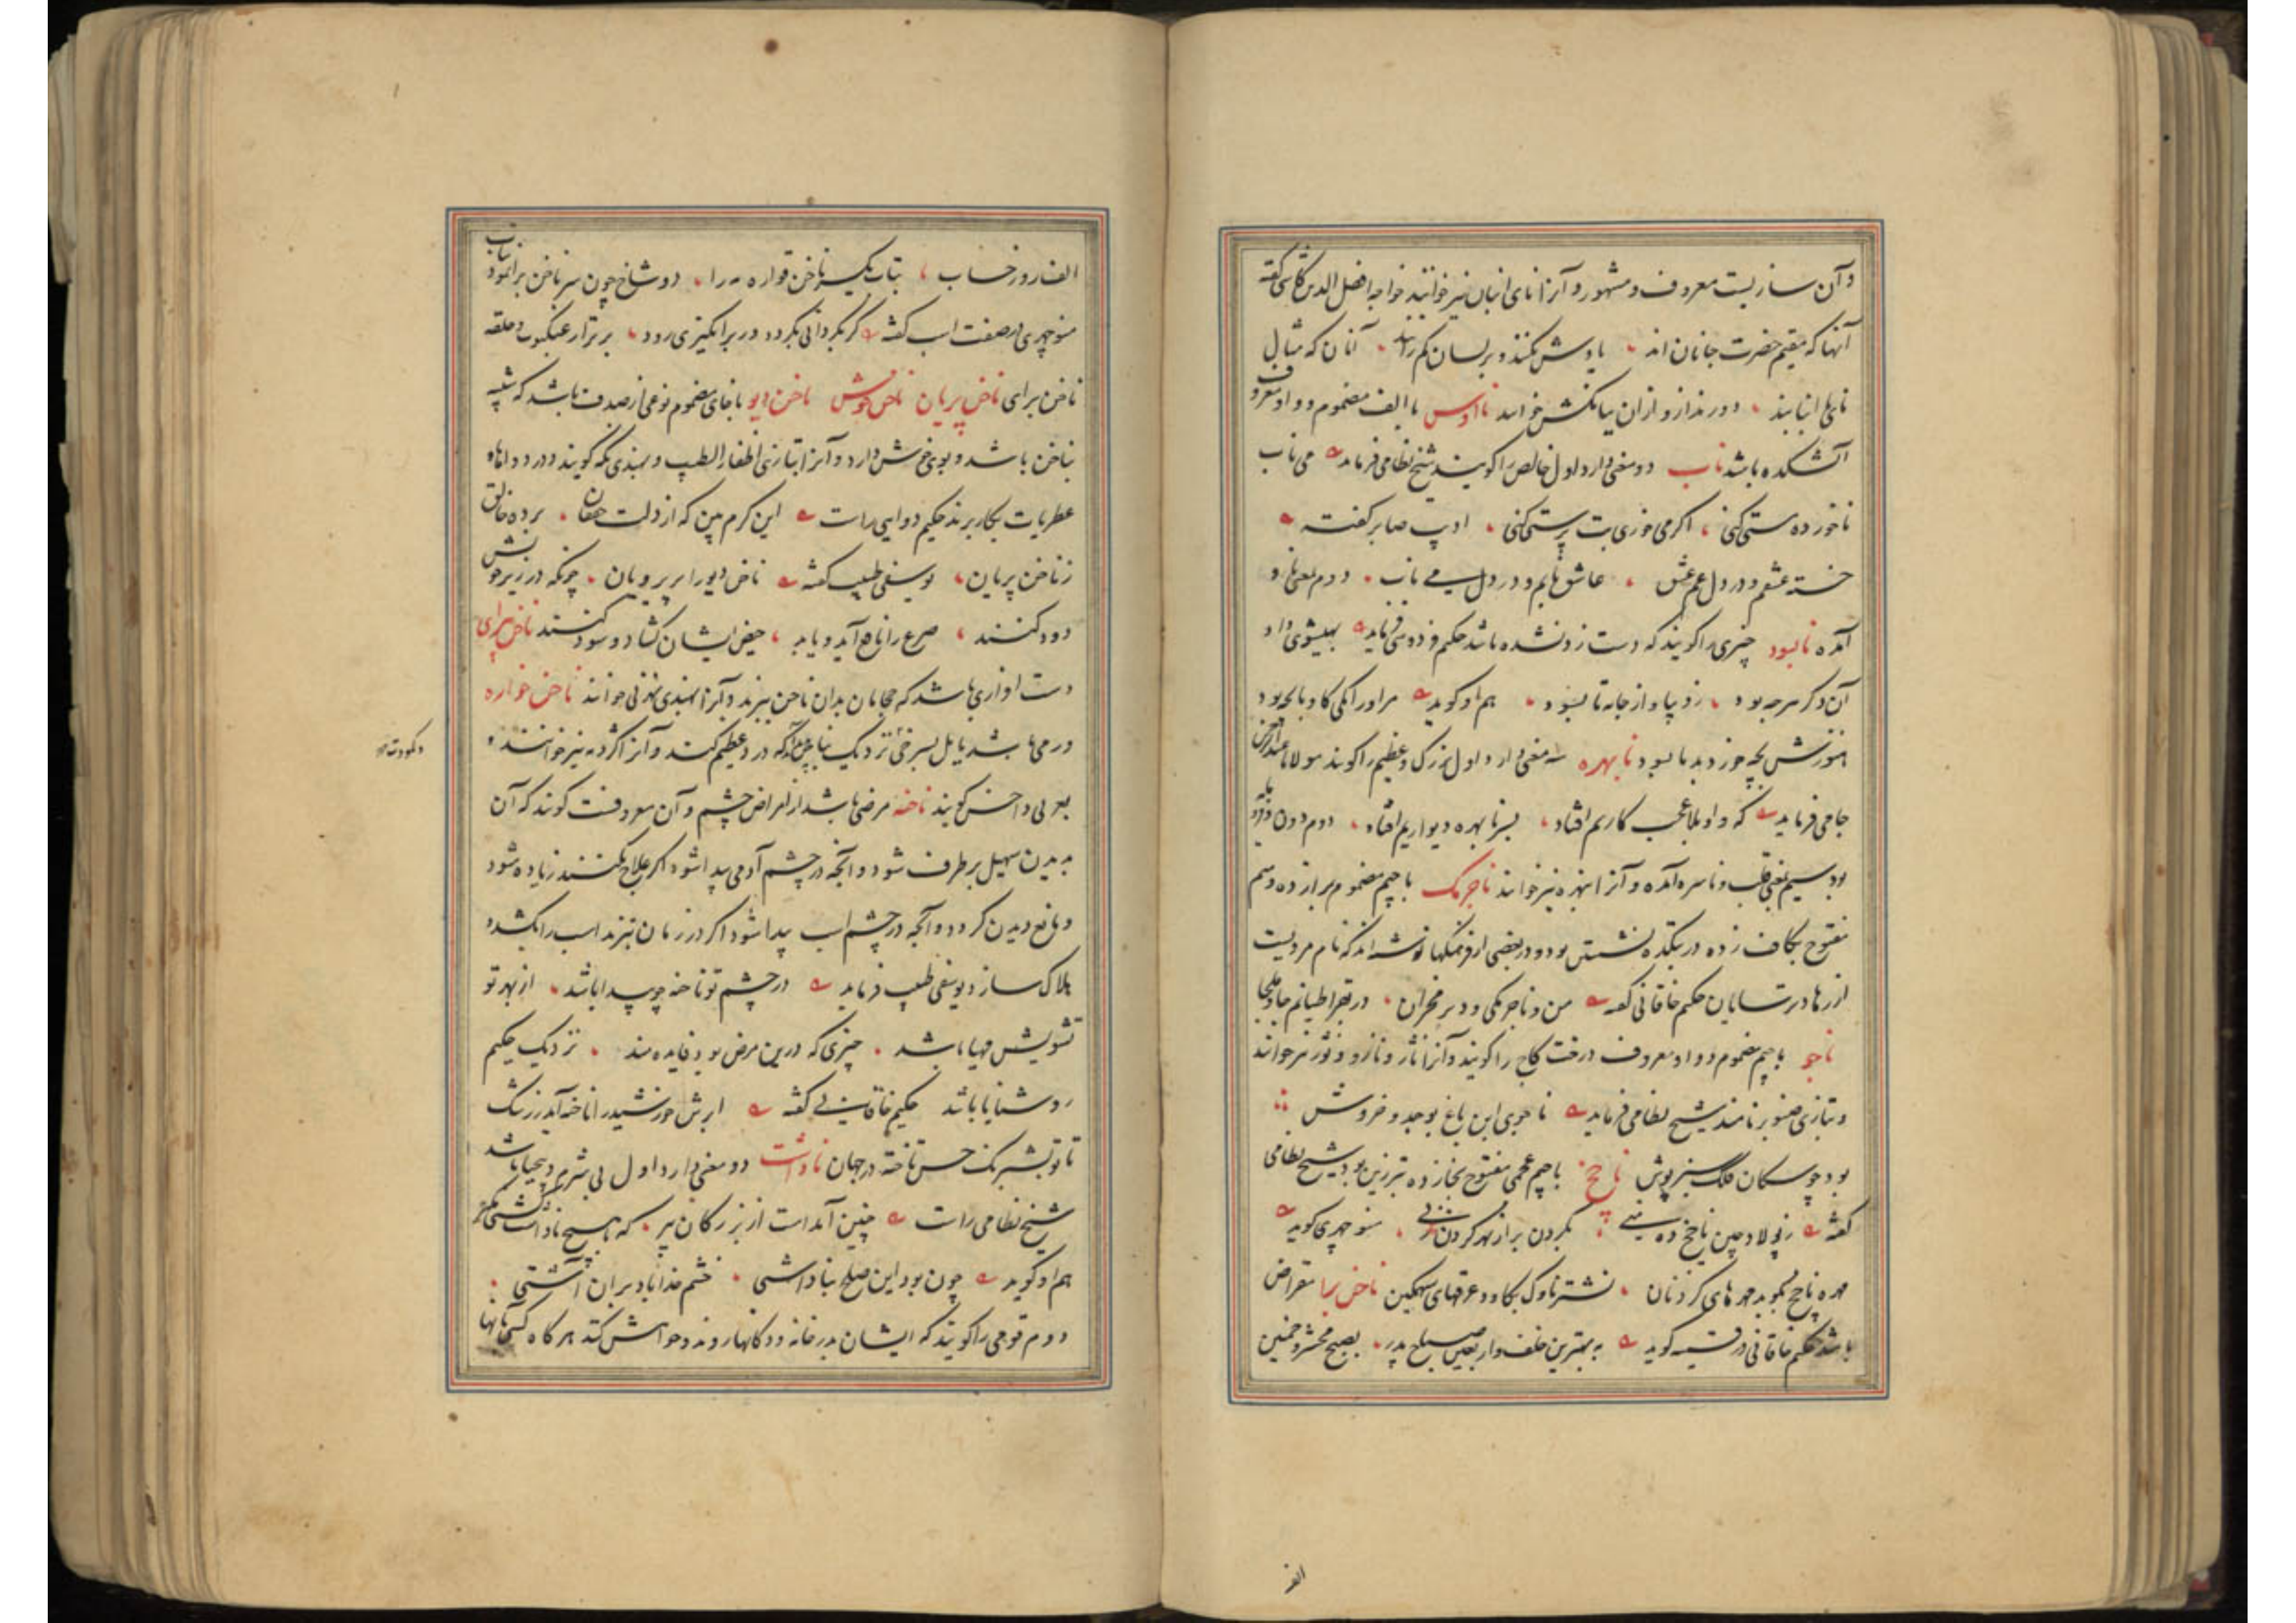 و آن سازیست معروف و مشهور و آنرا نای انبان نیز خوانند خواجه افضل الدین کاشی گفته
آنها که مقیم حضرت جانان اند یادش نکنند و بر لسان کم رانند آنان که مثال
نای انبانند دورند ازو ازان ببانگش خوانند ناؤس با الف مضموم و واو معروف
آتشکده باشد ناب دو معنی دارد اول خالص را گویند شیخ نظامی فرماید می ناب
ناخورده مستی کنی اگر می خوری بت پرستی کنی ادیب صابر گفته
خسته عشقم و در دل غم عشق عاشق نابم و در دل می ناب دوم بمعنی
آمده نابسود چیزی را گویند که دست زد نشده باشد حکیم فردوسی فرماید
آن دگر هرچه بود ز دیبا و از جامه نابسود هم او گوید
هنوزش نابسود نابهره سه معنی دارد اول بزرگ و عظیم را گویند مولانا عبدالرحمن
جامی فرماید که واویلا عجب کاریم افتاد بسر نابهره دیواریم افتاد دوم دون
بود سیم بمعنی قلب و ناسره آمده و آنرا نبهره نیز خوانند ناجرمک با جیم مضموم برا زده و میم
مفتوح بکاف زده در بتکده نشستن بود و در بعضی از فرهنگها نوشته اند که نام مردیست
از رهبان ترسایان حکیم خاقانی گفته من و ناجرمکی و دیر مخران در بقراطیانم جا و ملجا
ناجو با جیم مضموم و واو معروف درخت کاج را گویند و آنرا ناژ و نازو و نوژ نیز خوانند
و بتازی صنوبر نامند شیخ نظامی فرماید ناجوی این باغ بوجد و خروش
بود چو سکان فلک سبزپوش ناچخ با جیم عجمی مفتوح بخا زده تبرزین بود شیخ نظامی
گفته ز پولاد چین ناچخ ده منی بگردن برآر بهر گردن زنی منوچهری گوید
مهره ناچخ بکوبد مهرهای گردنان نشتر ناوک بکاود عرقهای سهمگین ناخن برا مقراض
باشد حکیم خاقانی در قسمیه گوید به بهترین خلف و اربعین صباح پدر بصبح محشر و خمسین
الف
الف روز حساب بتاب یکسر ناخن قواره مه را دو شاخ چون سر ناخن برا نمود بتاب
منوچهری در صفت اسب گفته گر بگردانی بگردد ور برانگیزی رود بر تار عنکبوت و حلقه
ناخن برای ناخن پریان ناخن خوش ناخن دیو با خای مضموم نوعی از صدف باشد که شبیه
بناخن باشد و بوی خوش دارد و آنرا بتازی اظفار الطیب و بهندی نکه گویند و در دواها و
عطریات بکار برند حکیم دوایی راست این کرم بین که از دلت خفقان برده خالق
ز ناخن پریان یوسفی طبیب گفته ناخن دیو را پریرویان چونکه در زیر خویش
دود کنند صرع را نافع آید و یابد حیض ایشان گشاد و سود کنند ناخن پیرای
دست افزاری باشد که حجامان بدان ناخن ببرند و آنرا بهندی نهرنی خوانند ناخن خواره
ورمی باشد مایل بسرخی نزدیک بناخن که درد عظیم کند و آنرا کژدمه نیز خوانند و
بعربی داحس گویند ناخنه مرضی باشد از امراض چشم و آن معروفست گویند که آن
به دیدن سهیل برطرف شود و آنچه در چشم آدمی پیدا شود اگر علاج نکنند زیاده شود
و مانع دیدن گردد و آنچه در چشم اسب پیدا شود اگر در زمان نبرند اسب را بکشد و
هلاک سازد یوسفی طبیب فرماید در چشم تو ناخنه چو پیدا باشد از بهر تو
تشویش مهیا باشد چیزی که درین مرض بود فایده مند نزدیک حکیم
روشنایا باشد حکیم خاقانی گفته ابرش خورشید را ناخنه آمد ز رشک
تا تو بشبرنگ حسن تاخته در جهان ناداشت دو معنی دارد اول بی شرم و بیحیا باشد
شیخ نظامی راست چنین آمدست از بزرگان پیر که با هیچ ناداشت کشتی مگیر
هم او گوید چون بود این صلح بناداشتی خشم خدا باد بران آشتی
دوم قومی را گویند که ایشان بدر خانه و دکانها روند و خواهش کنند هرگاه کسی بآنها